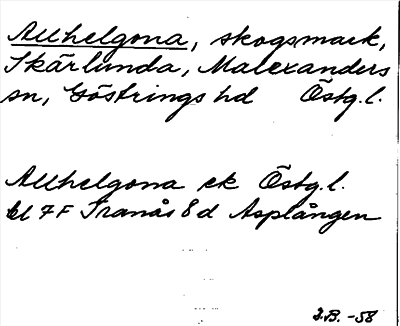 Allhelgona, skogsmark,
Skärlunda, Malexanders
sn, Göstrings hd Östg.l.
Allhelgona ek Östg.l.
bl 7F Tranås 8d Asplången
J.B. -58